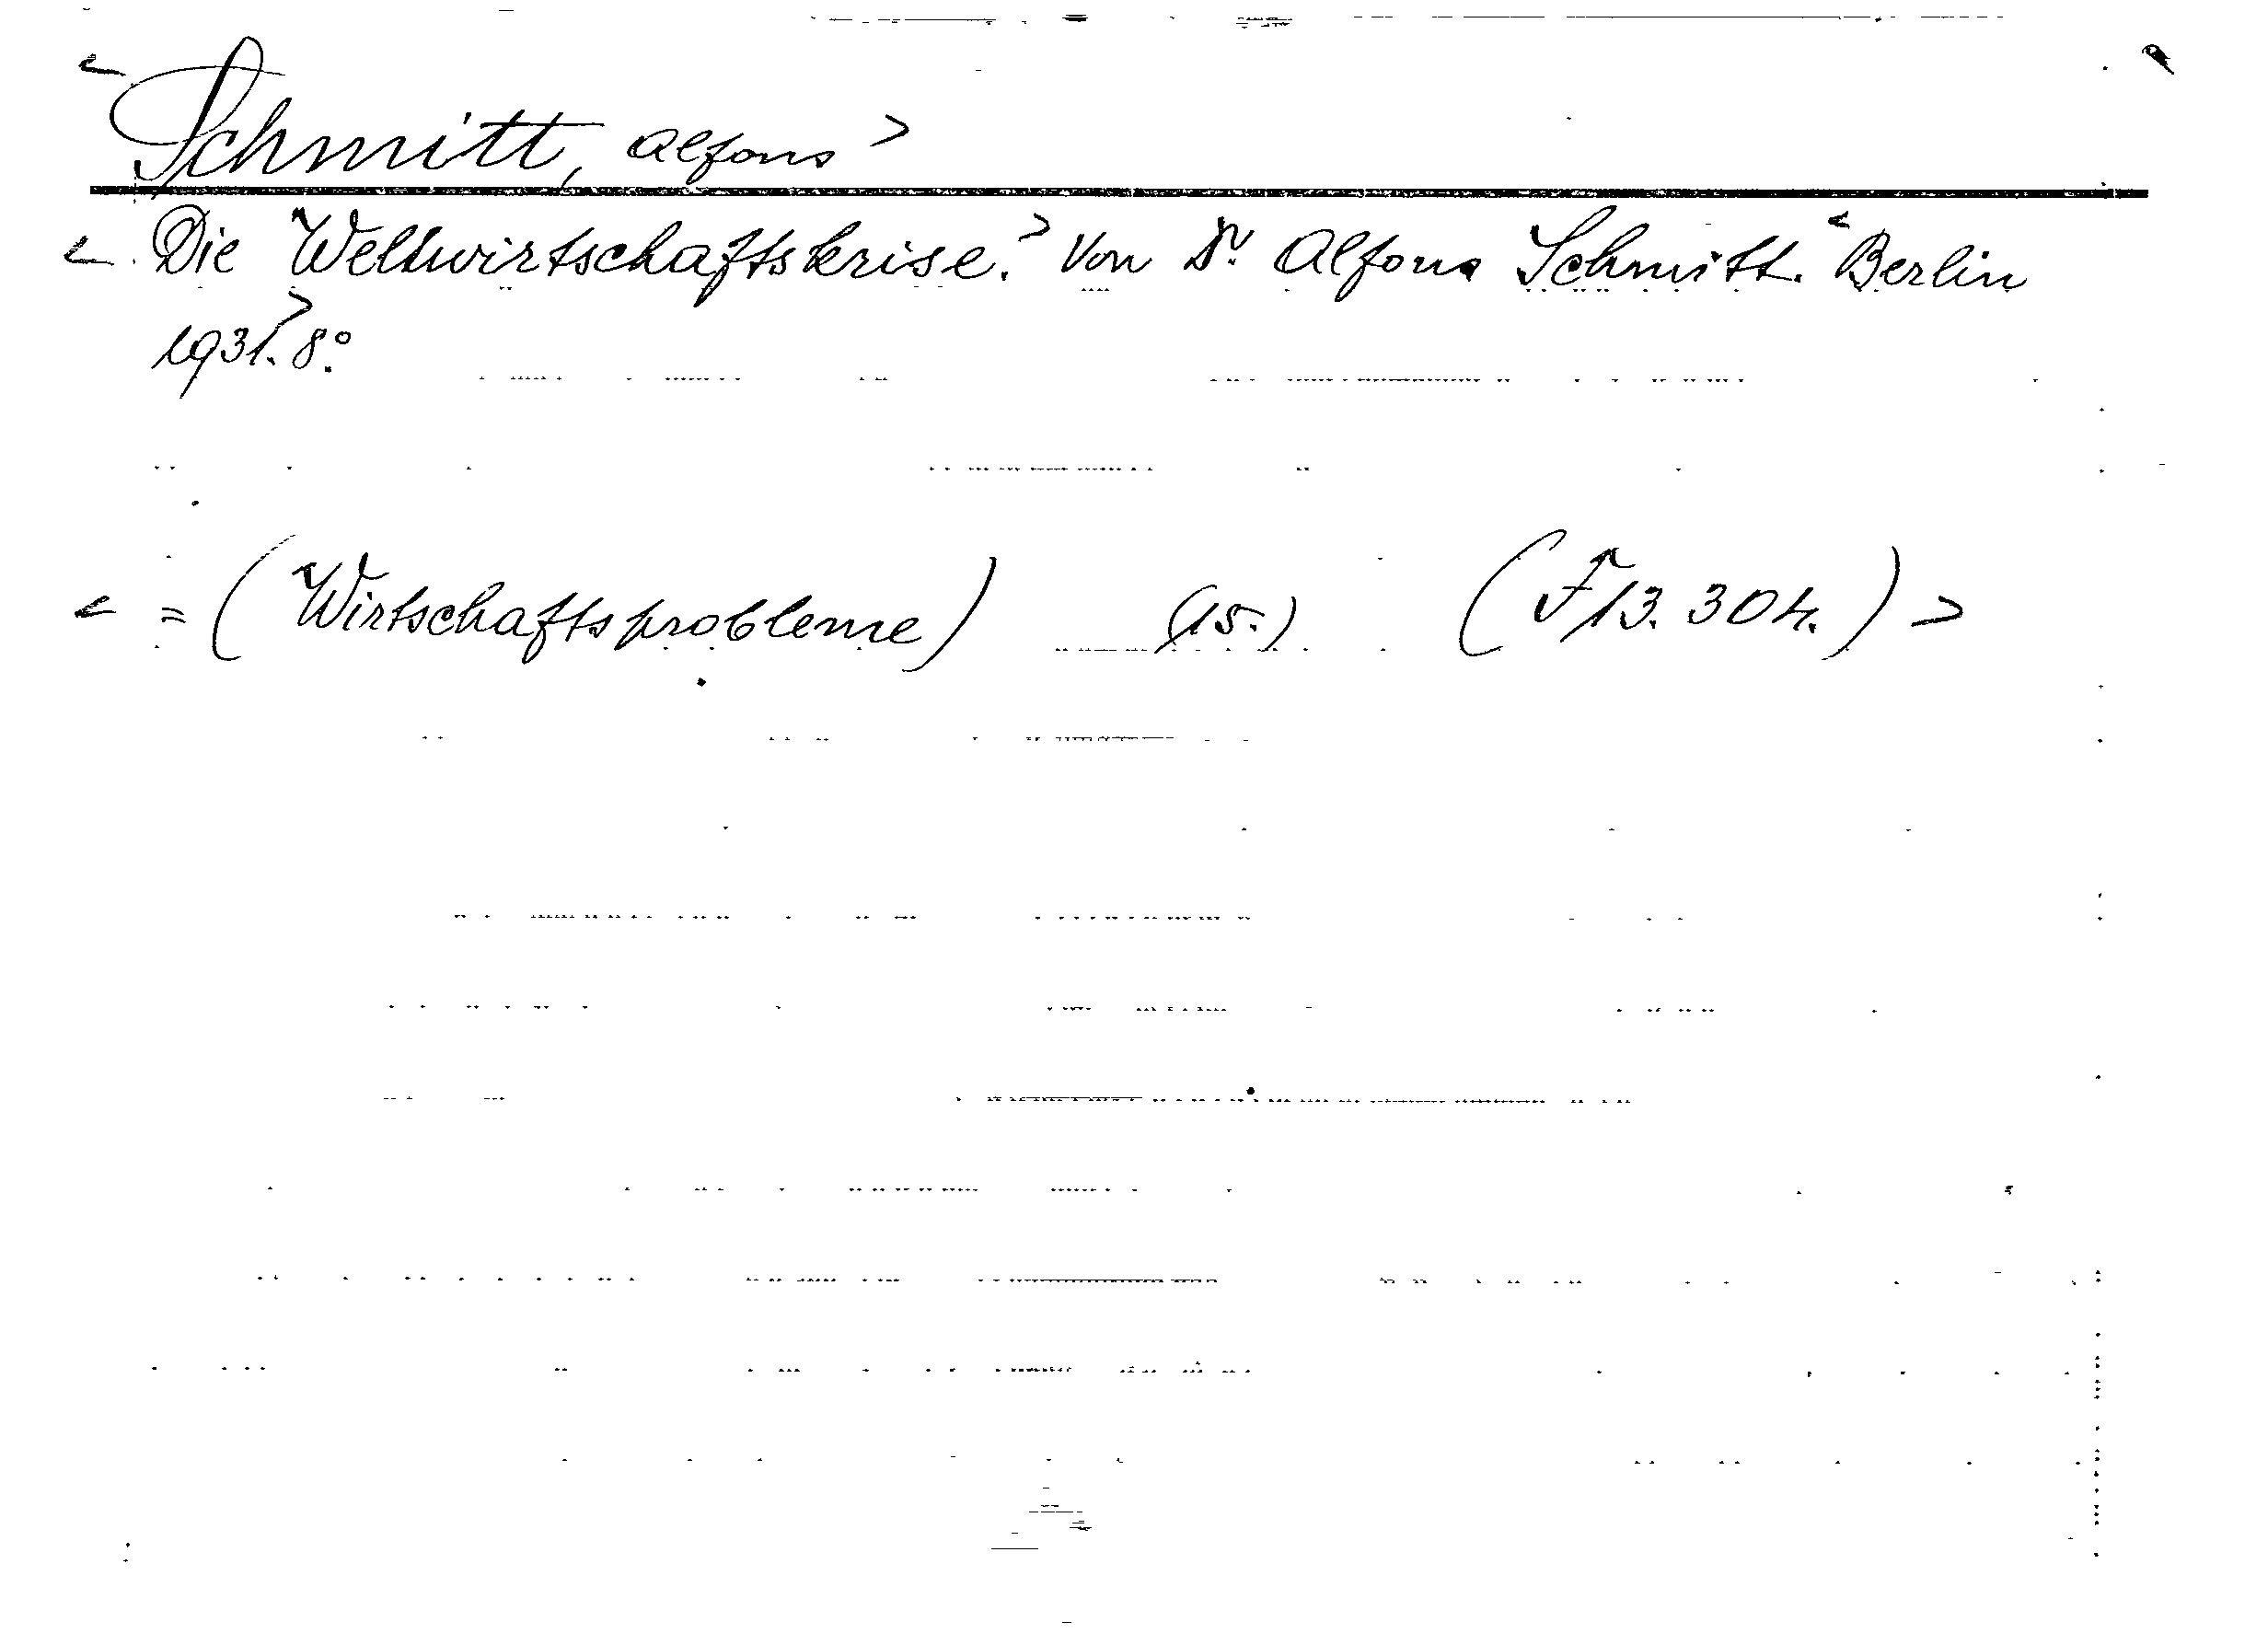 < Schmitt, Alfons >
< Die Weltwirtschaftskrise. > Von Dr. Alfons Schmitt. < Berlin
1931. > 8°.
< = (Wirtschaftsprobleme) (15.) (F 13. 304.) >